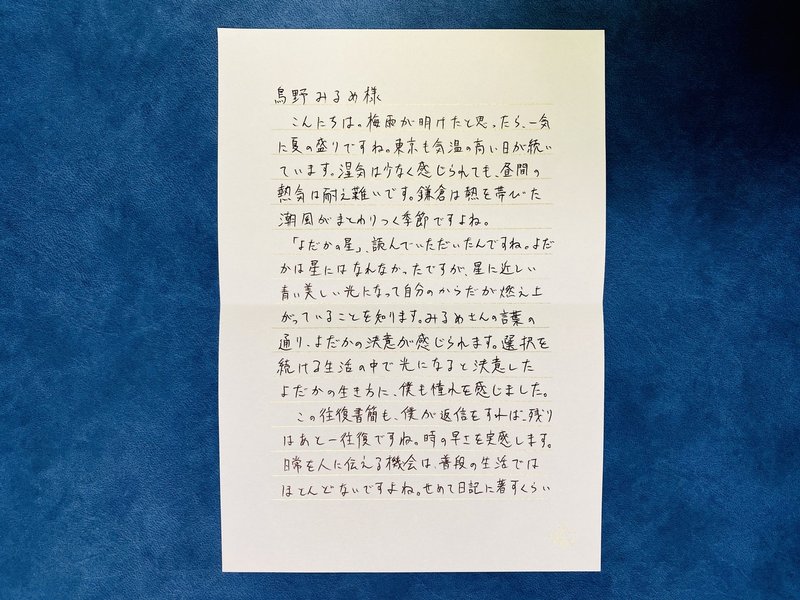 鳥野みるめ様
こんにちは。梅雨が明けたと思ったら、一気
に夏の盛りですね。東京も気温の高い日が続い
ています。湿気は少なく感じられても、昼間の
熱気は耐え難いです。鎌倉は熱を帯びた
潮風がまとわりつく季節ですよね。
「よだかの星」、読んでいただいたんですね。よだ
かは星にはなれなかったですが、星に近しい
青い美しい光になって自分のからだが燃え上
がっていることを知ります。みるめさんの言葉の
通り、よだかの決意が感じられます。選択を
続ける生活の中で光になると決意した
よだかの生き方に、僕も憧れを感じました。
この往復書簡も、僕が返信をすれば、残り
はあと一往復ですね。時の早さを実感します。
日常を人に伝える機会は、普段の生活では
ほとんどないですよね。せめて日記に著すくらい